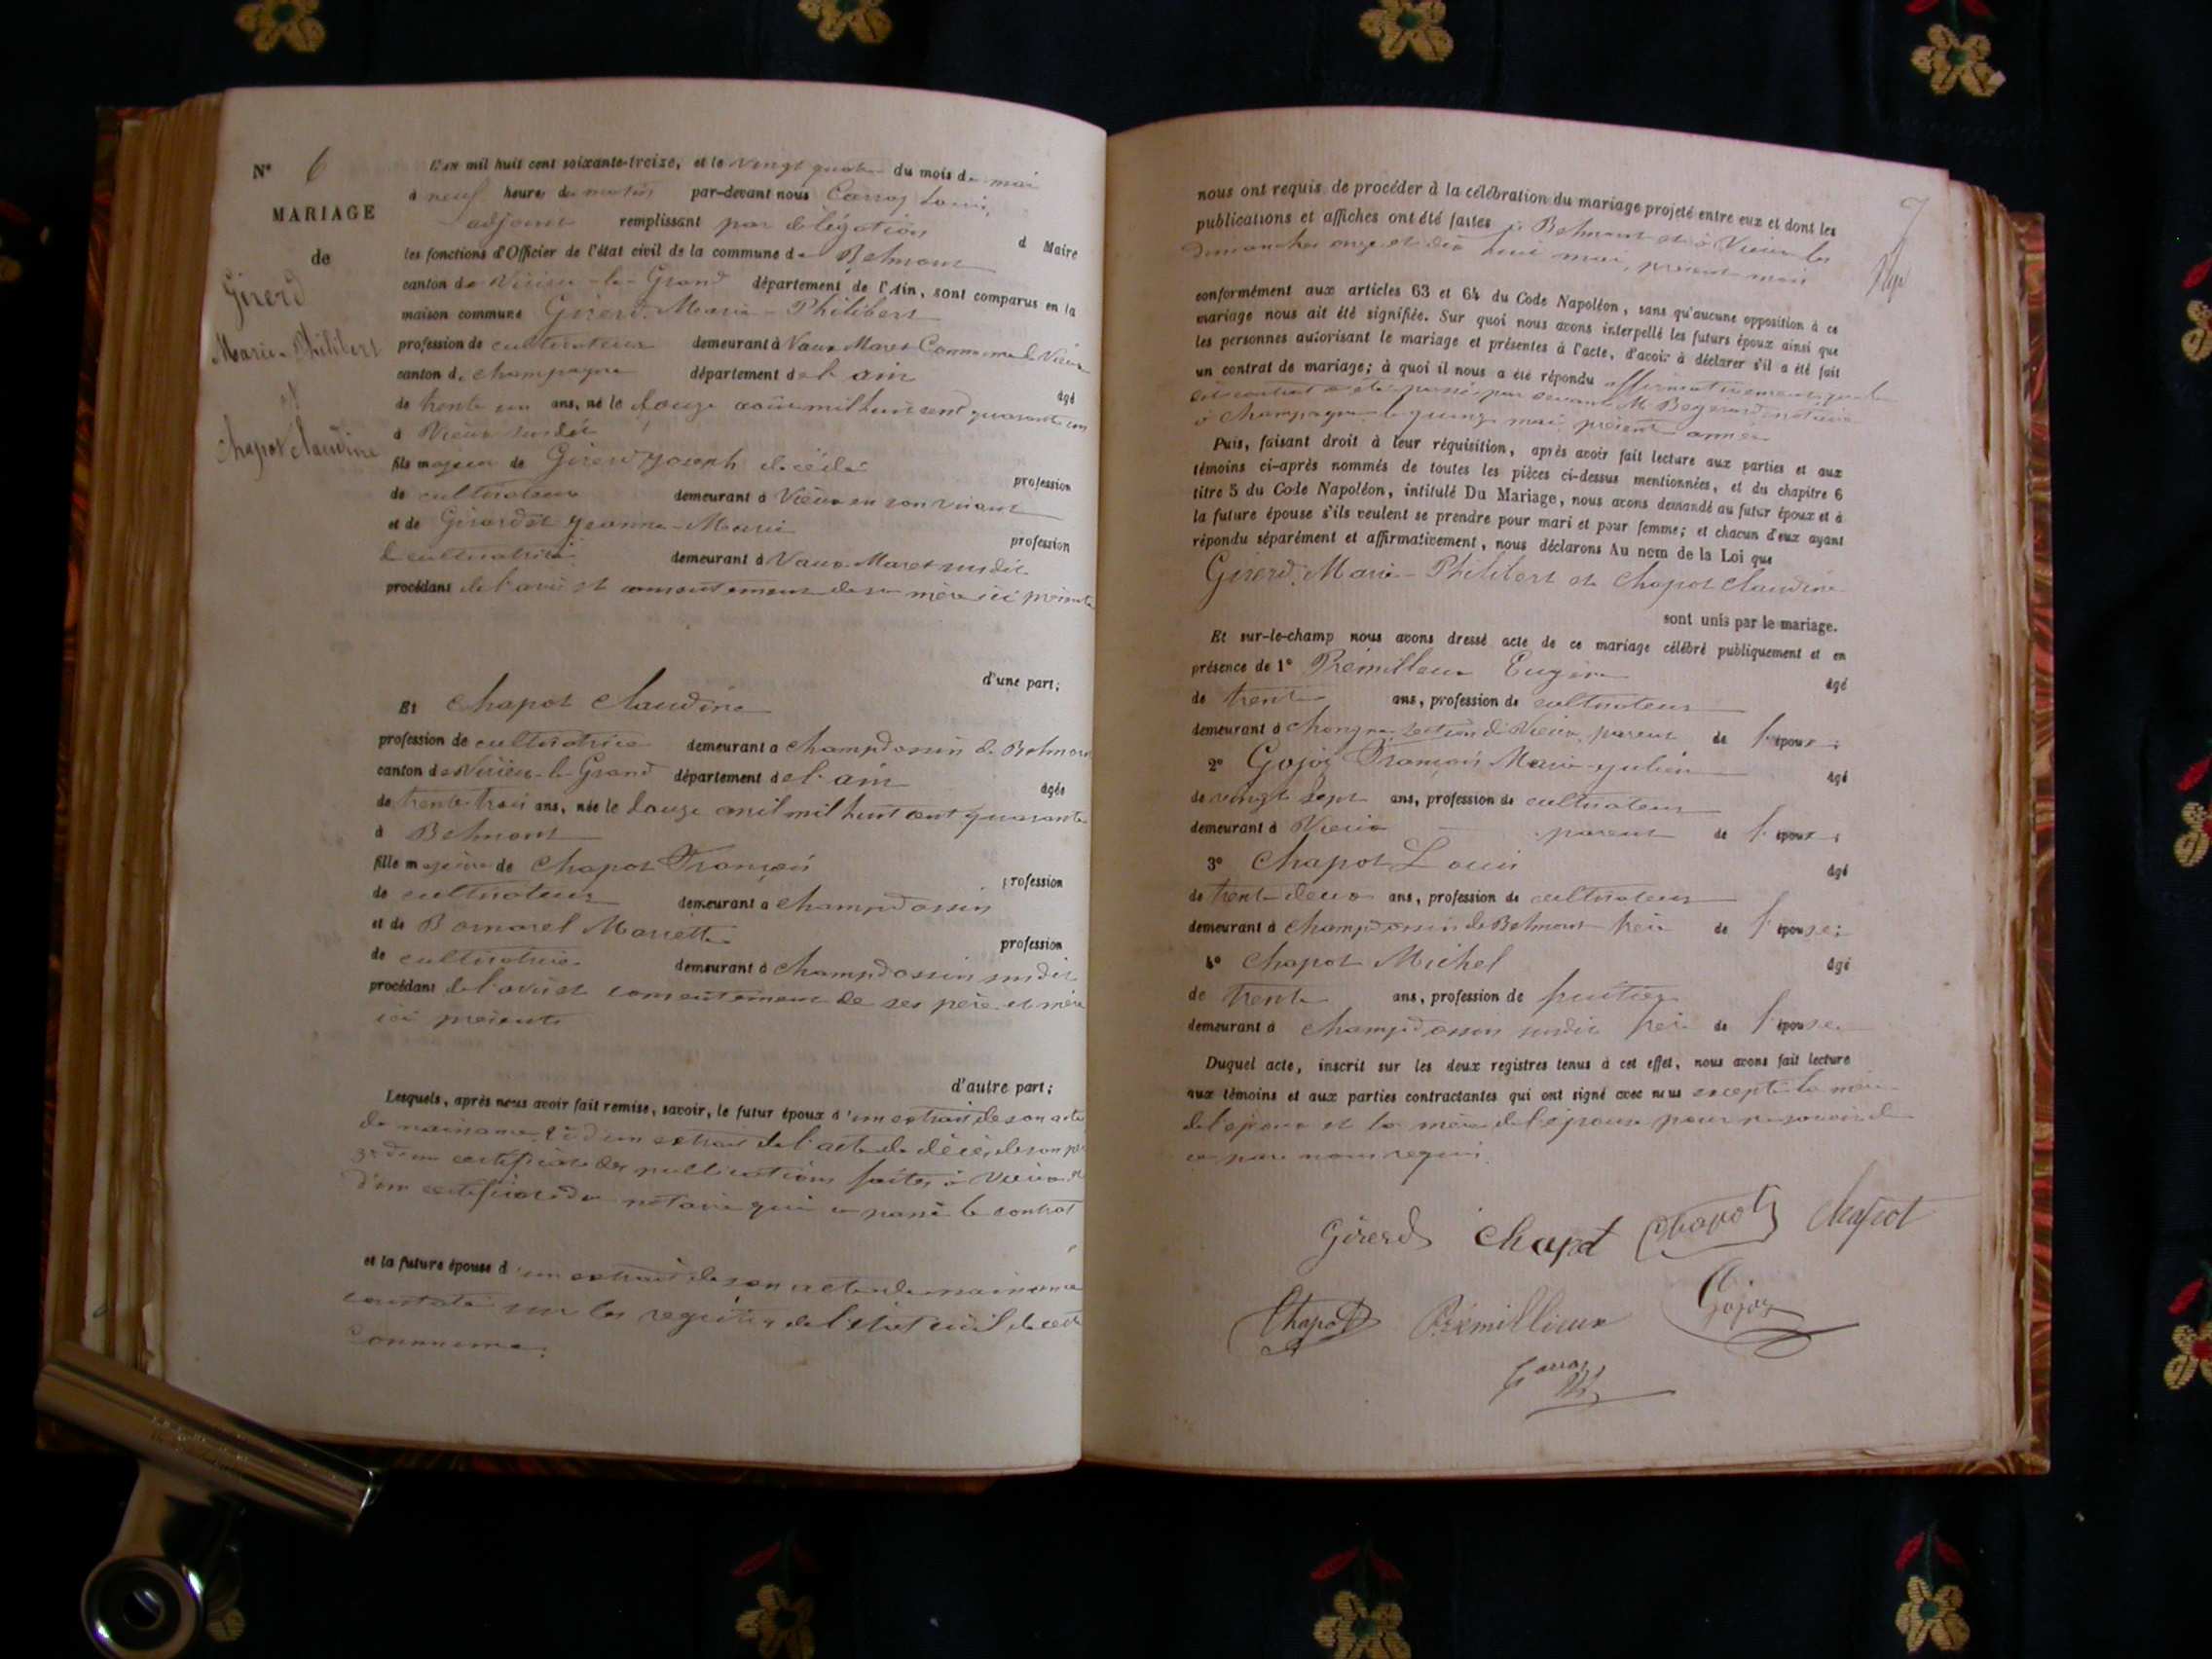 N° 6
MARIAGE
de
Girerd
Marie-Philibert
et
Chapot Claudine
L'an mil huit cent soixante-treize, et le vingt quatre du mois de mai
à neuf heures du matin par-devant nous Carray Louis,
adjoint remplissant par délégation d Maire
les fonctions d'Officier de l'état civil de la commune de Belmont
canton de Virieu-le-Grand département de l'Ain, sont comparus en la
maison commune Girerd, Marie-Philibert
profession de cultivateur demeurant à Vaux Moret Commune de Vieu
canton de Champagne département de l'ain âgé
de trente un ans, né le douze août mil huit cent quarante un
à Vieu susdit
fils majeur de Girerd Joseph décédé profession
de cultivateur demeurant à Vieu en son vivant
et de Girardet Jeanne-Marie profession
de cultivatrice demeurant à Vaux Moret susdit
procédant de l'avis et consentement de sa mère ici présente
d'une part;
Et Chapot Claudine
profession de cultivatrice demeurant à Champdossin de Belmont
canton de Virieu-le-Grand département de l'ain âgée
de trente trois ans, née le douze avril mil huit cent quarante
à Belmont
fille majeure de Chapot François profession
de cultivateur demeurant à Champdossin
et de Bornarel Mariette profession
de cultivatrice demeurant à Champdossin susdit
procédant de l'avis et consentement de ses père et mère
ici présents
d'autre part;
Lesquels, après nous avoir fait remise, savoir, le futur époux d'un extrait de son acte
de naissance, 2° d'un extrait de l'acte de décès de son père
3° d'un certificat des publications faites à Vieu et
d'un certificat du notaire qui a passé le contrat
et la future épouse d'un extrait de son acte de naissance
constaté sur les registres de l'état civil de cette
commune.
7
nous ont requis de procéder à la célébration du mariage projeté entre eux et dont les
publications et affiches ont été faites à Belmont et à Vieu les
dimanches onze et dix huit mai, présent mois
conformément aux articles 63 et 64 du Code Napoléon, sans qu'aucune opposition à ce
mariage nous ait été signifiée. Sur quoi nous avons interpellé les futurs époux ainsi que
les personnes autorisant le mariage et présentes à l'acte, d'avoir à déclarer s'il a été fait
un contrat de mariage; à quoi il nous a été répondu affirmativement, que le
dit contrat a été passé par devant Me notaire
à Champagne le quinze mai présent année
Puis, faisant droit à leur réquisition, après avoir fait lecture aux parties et aux
témoins ci-après nommés de toutes les pièces ci-dessus mentionnées, et du chapitre 6
titre 5 du Code Napoléon, intitulé Du Mariage, nous avons demandé au futur époux et à
la future épouse s'ils veulent se prendre pour mari et pour femme; et chacun d'eux ayant
répondu séparément et affirmativement, nous déclarons Au nom de la Loi que
Girerd, Marie-Philibert et Chapot Claudine
sont unis par le mariage.
Et sur-le-champ nous avons dressé acte de ce mariage célébré publiquement et en
présence de 1° Prémillieux Eugène âgé
de trente ans, profession de cultivateur
demeurant à Chongnes section de Vieu, parent de l'époux;
2° Gojoz François Marie-Julien âgé
de vingt sept ans, profession de cultivateur
demeurant à Vieu parent de l'époux;
3° Chapot Louis âgé
de trente-deux ans, profession de cultivateur
demeurant à Champdossin de Belmont frère de l'épouse;
4° Chapot Michel âgé
de trente ans, profession de fruitier
demeurant à Champdossin susdit frère de l'épouse.
Duquel acte, inscrit sur les deux registres tenus à cet effet, nous avons fait lecture
aux témoins et aux parties contractantes qui ont signé avec nous excepté la mère
de l'époux et la mère de l'épouse pour ne savoir de
ce par nous requis.
Girerd Chapot Chapot Chapot
Chapot Prémillieux Gojoz
Carray